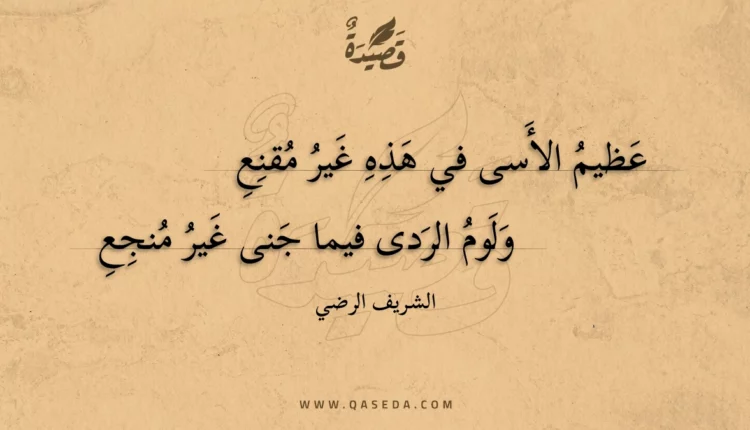 قَصِيدَةٌ
عَظيمُ الأَسى في هَذِهِ غَيرُ مُقنِعِ
وَلَومُ الرَدى فيما جَنى غَيرُ مُنجِعِ
الشريف الرضي
WWW.QASEDA.COM